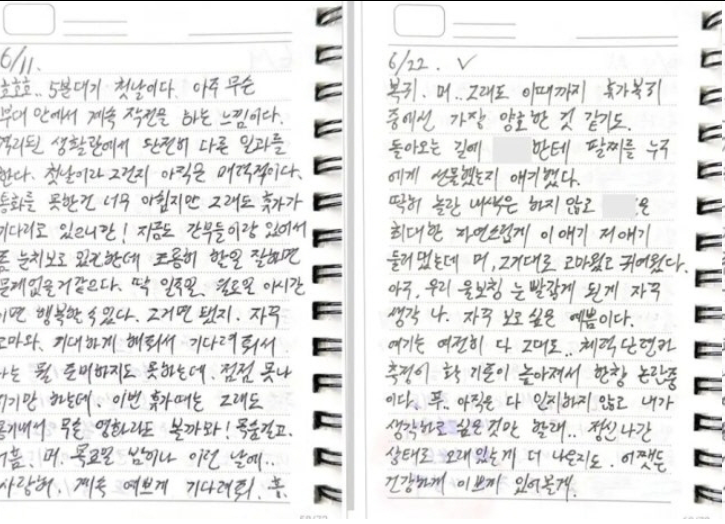 6/11.
호호호.. 5분대기 첫날이다. 아주 무슨
부대 안에서 계속 작전을 하는 느낌이다.
격리된 생활관에서 완전히 다른 일과를
한다. 첫날이라 그런지 아직은 매력적이다.
통화를 못한건 너무 아쉽지만 그래도 휴가가
기다리고 있으니깐! 지금도 간부들이랑 있어서
좀 눈치보고 있긴한데 조용히 할일 잘하면
문제없을거같은다. 딱 일주일. 월요일 이시간
이면 행복할 수 있다. 그거면 됐지. 자꾸
고마와. 기대하게 해줘서 기다려줘서.
나는 뭘 준비하지도 못하는데. 점점 못나
지기만 하는데. 이번 휴가때는 그래도
용기내서 무슨 영화라도 볼까봐! 목숨걸고.
흐흠. 머. 목요일 밤이나 이런 날에..
사랑해. 계속 예쁘게 기다려줘. 흠.
6/22. ✓
복귀. 머.. 그래도 이때까지 휴가복귀
중에선 가장 양호한 것 같기도.
돌아오는 길에 한테 팔찌를 누구
에게 선물했는지 얘기했다.
딱히 놀란 내색은 하지 않고 은
최대한 자연스럽게 이 얘기 저 얘기
들려줬는데 머, 그거대로 고마웠고 귀여웠다.
아주, 우리 울보찡 눈 빨갛게 된게 자꾸
생각 나. 자꾸 보고 싶은 예쁨이다.
여기는 여전히 다 그대로.. 체력단련과
측정이 확 기준이 높아져서 한창 논란중
이다. 푸. 아직은 다 인지하지 않고 내가
생각하고 싶은것만 할래.. 정신나간
상태로 오래있는게 더 나은지도. 어쨌든
건강하게 이쁘게 있어볼게.